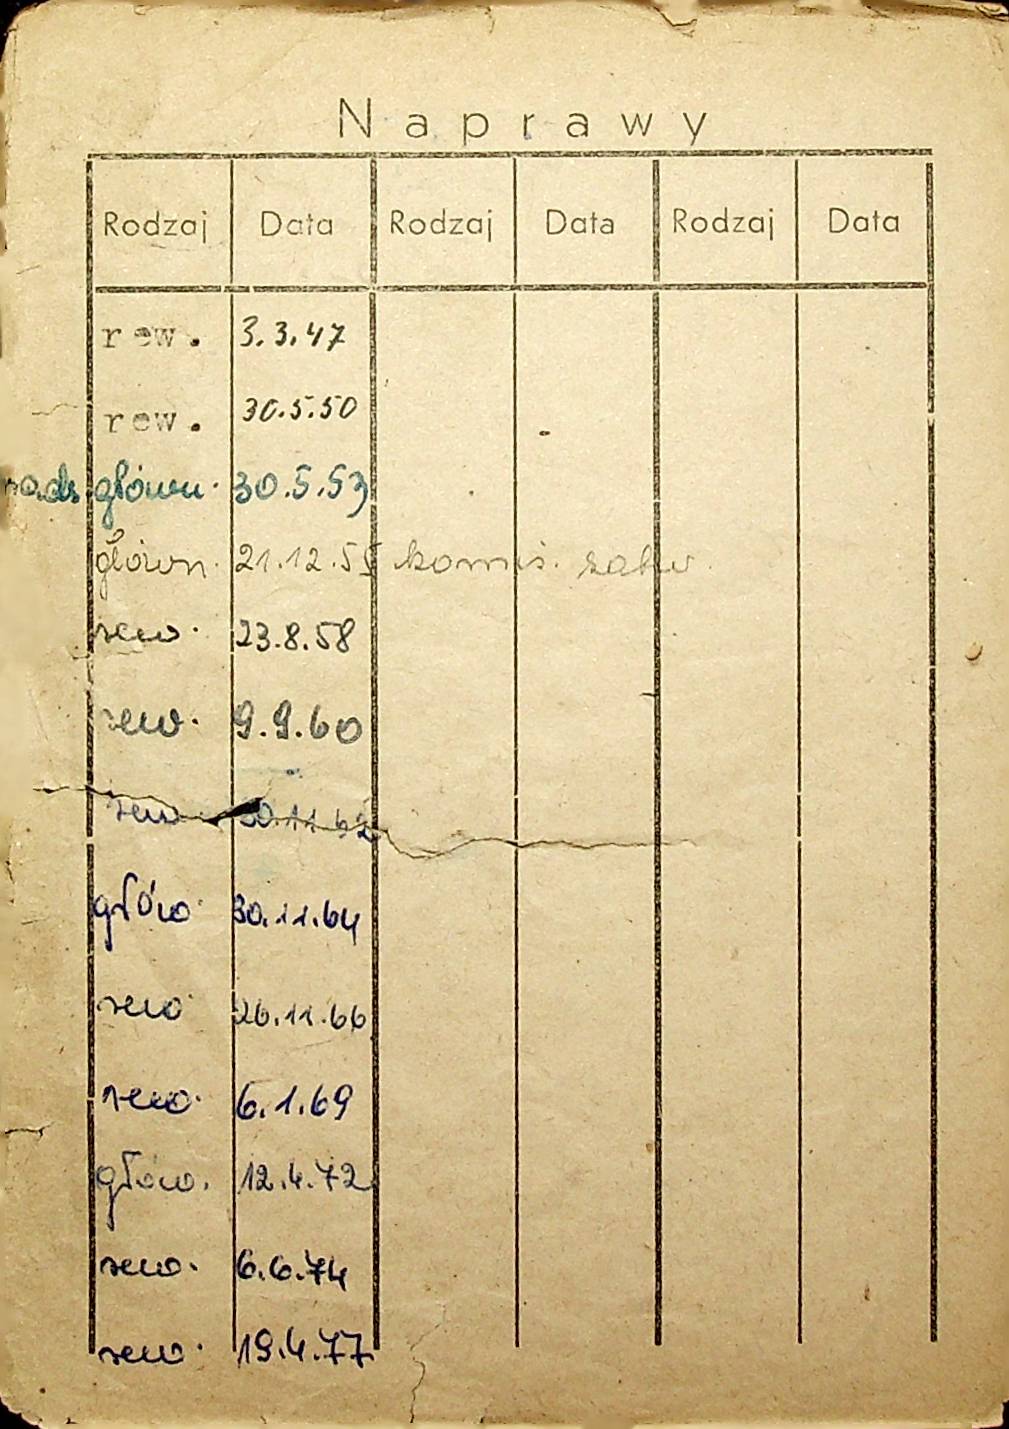 Naprawy
Rodzaj Data Rodzaj Data Rodzaj Data
rew. 3.3.47
rew. 30.5.50
główn. 30.5.53
główn. 21.12.55 komis.
rew. 23.8.58
rew. 9.9.60
rew 30.11.62
głów. 30.11.64
rew 26.11.66
rew. 6.1.69
głów. 12.4.72
rew. 6.6.74
rew. 19.4.77